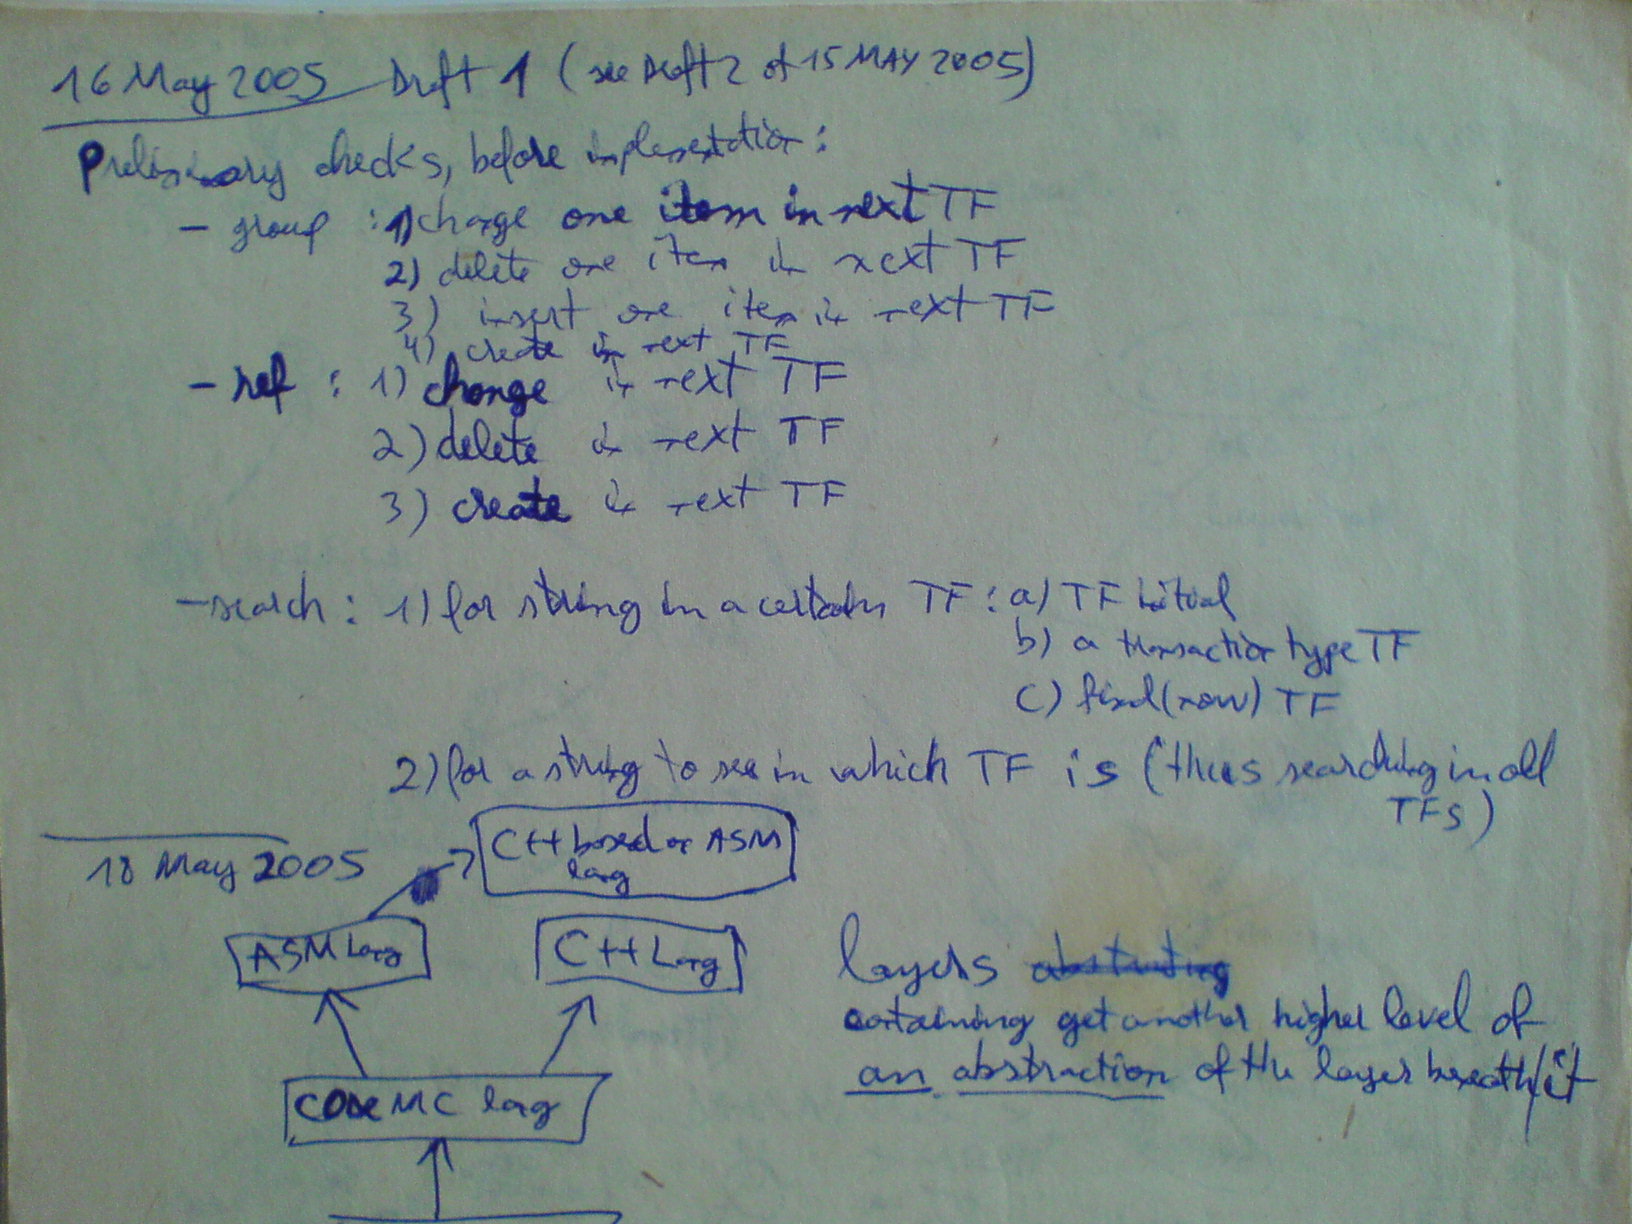 16 May 2005 Draft 1 (see Draft 2 of 15 MAY 2005)
Preliminary checks, before implementation:
- group : 1) change one item in next TF
2) delete one item in next TF
3) insert one item in next TF
4) create in next TF
- ref : 1) change in next TF
2) delete in next TF
3) create in next TF
- search : 1) for string in a certain TF : a) TF initial
b) a transaction type TF
c) final (now) TF
2) for a string to see in which TF is (thus searching in all
TFs)
18 May 2005
C++ based on ASM
lang
ASM Lang
C++ Lang
layers abstracting
containing get another higher level of
an abstraction of the layer beneath/it
CORE MC lang